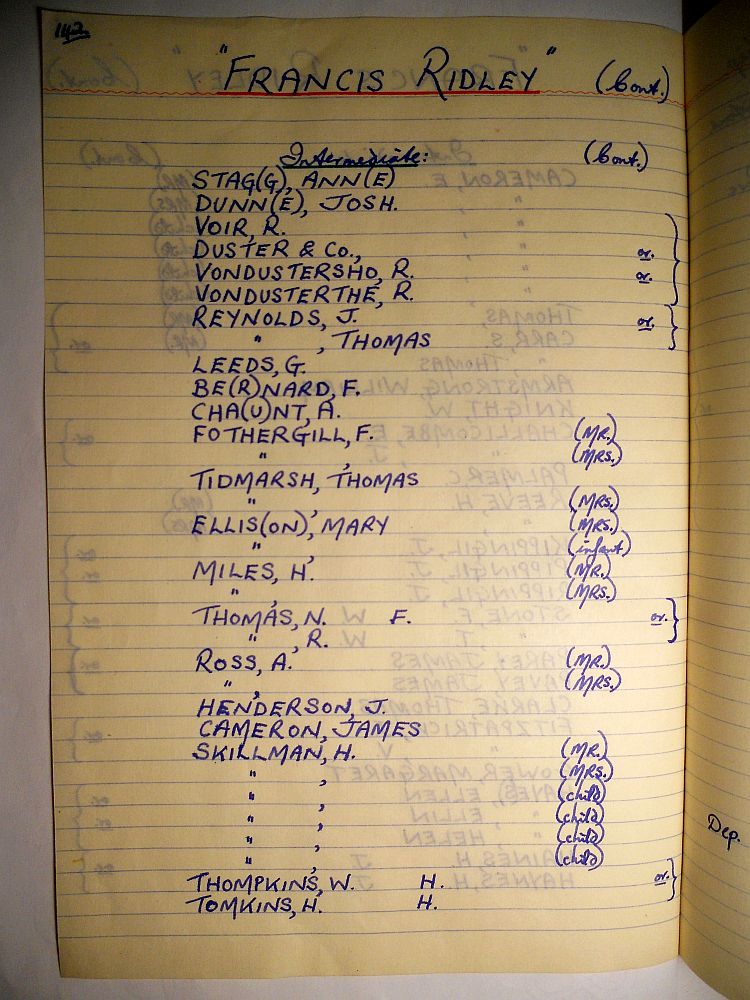 142.
"FRANCIS RIDLEY" (Cont.)
Intermediate: (Cont.)
STAG(G), ANN(E)
DUNN(E), JOSH.
VOIR, R.
DUSTER & Co., or.
VONDUSTERSHO, R. or.
VONDUSTERTHE, R.
REYNOLDS, J. or.
" , THOMAS
LEEDS, G.
BE(R)NARD, F.
CHA(U)NT, A.
FOTHERGILL, F. (MR.)
" , (MRS.)
TIDMARSH, THOMAS
" , (MRS.)
ELLIS(ON), MARY (MRS.)
" , (infant)
MILES, H. (MR.)
" , (MRS.)
THOMAS, N. W F. or.
" , R. W.
ROSS, A. (MR.)
" , (MRS.)
HENDERSON, J.
CAMERON, JAMES
SKILLMAN, H. (MR.)
" , (MRS.)
" , (child)
" , (child)
" , (child)
" , (child)
THOMPKINS, W. H. or.
TOMKINS, H. H.
Dep.